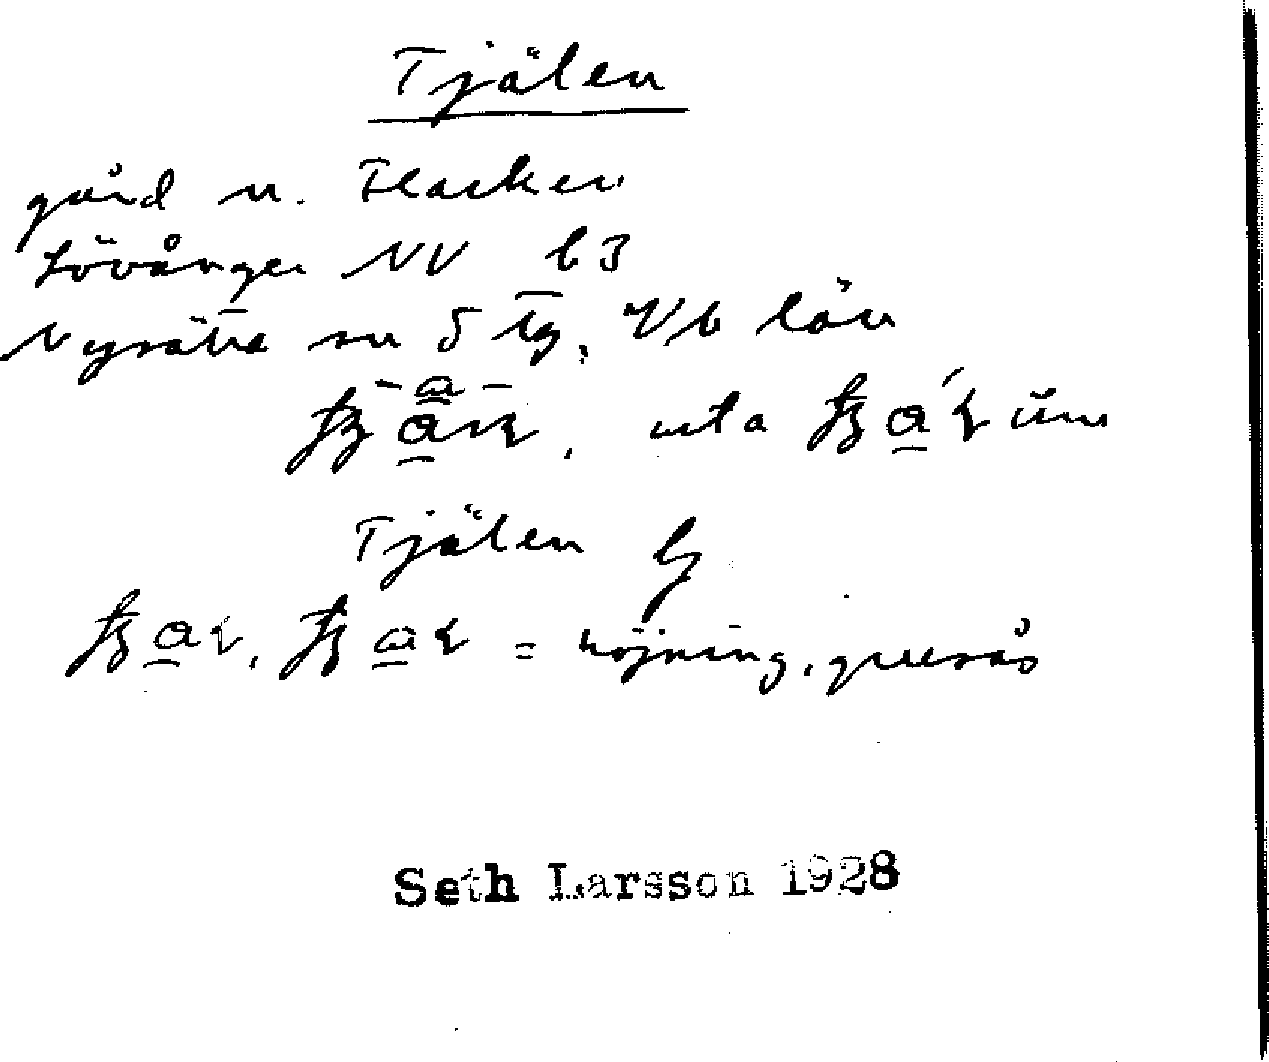 Tjälen
gård n. Flarken
Lövånger NV b3
Nysätra sn S tg, Vb län
uta
Tjälen G
= höjning, grusås
Seth Larsson 1928